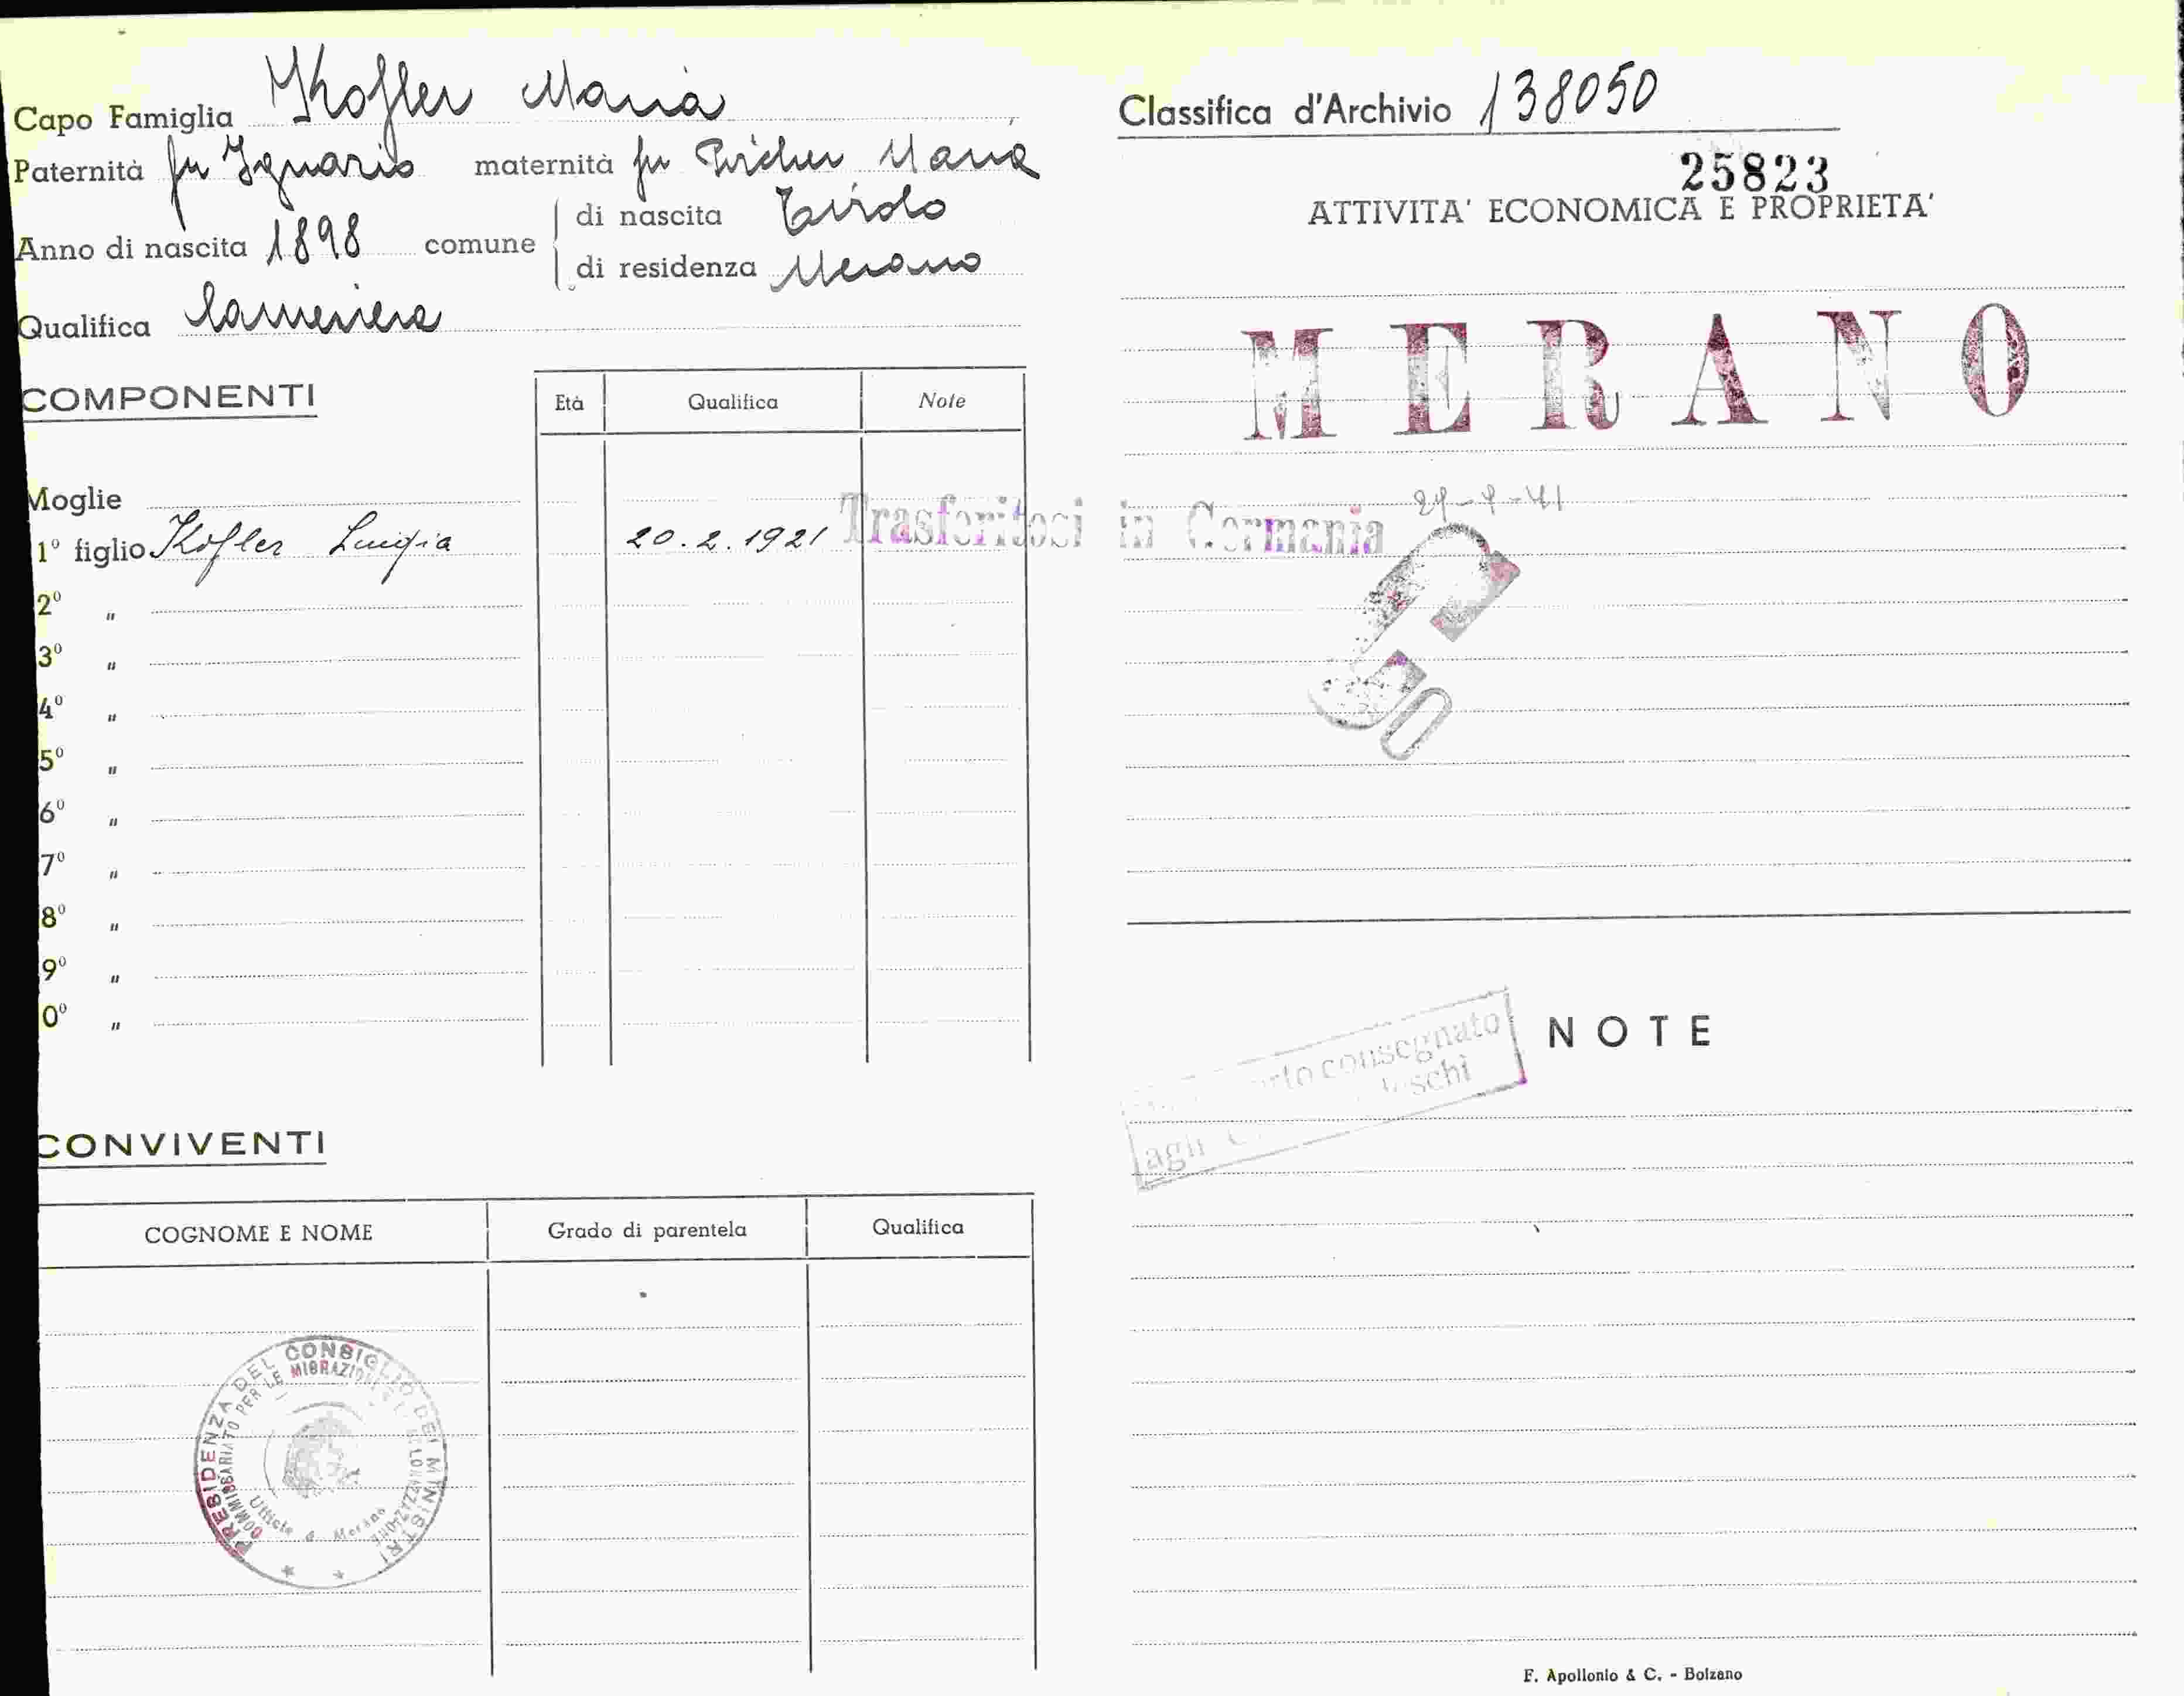 Capo Famiglia Kofler Maria
Paternità fu Ignazio maternità fu Pircher Maria
Anno di nascita 1898 comune di nascita Tirolo
di residenza Merano
Qualifica Cameriera
COMPONENTI
Età Qualifica Note
Moglie
1º figlio Kofler Luigia 20.2.1921
2º "
3º "
4º "
5º "
6º "
7º "
8º "
9º "
0º "
CONVIVENTI
COGNOME E NOME Grado di parentela Qualifica
PRESIDENZA DEL CONSIGLIO DEI MINISTRI
COMMISSARIATO PER LE MIGRAZIONI E LA COLONIZZAZIONE
Ufficio di Merano
Classifica d'Archivio 138050
25823
ATTIVITA' ECONOMICA E PROPRIETA'
MERANO
Trasferitosi in Germania
G
50
NOTE
consegnato
agli
F. Apollonio & C. - Bolzano